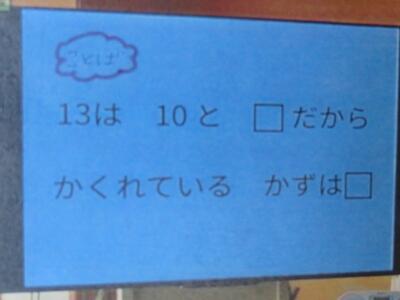 ことば
13は 10と □だから
かくれている かずは□